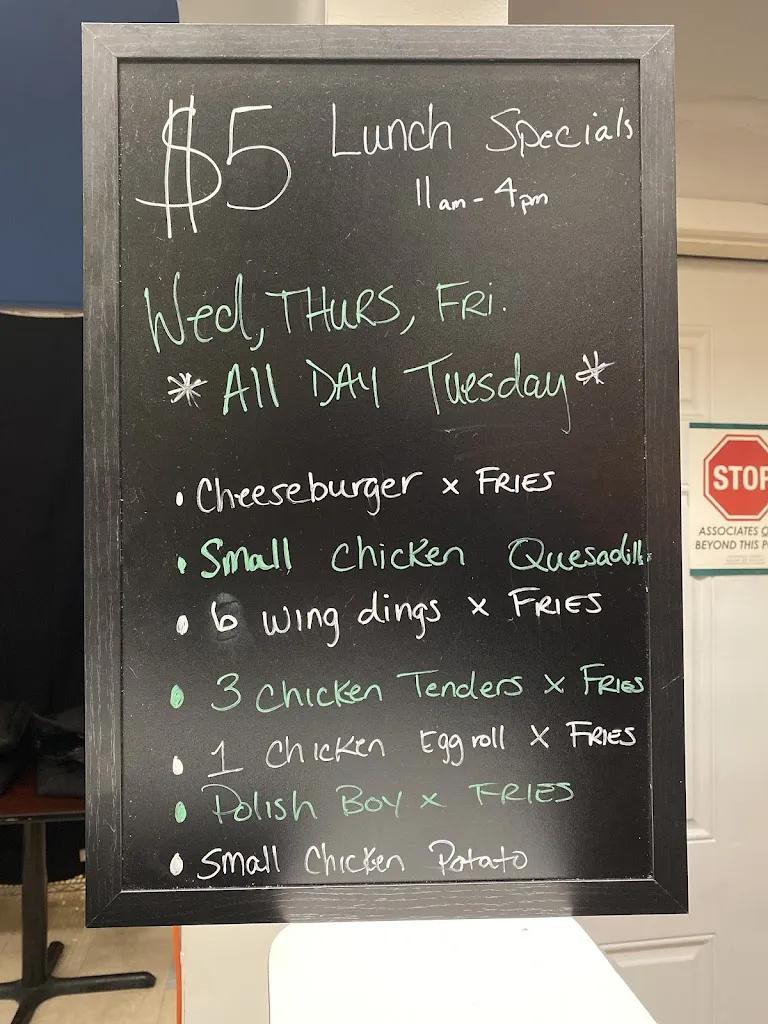 $5 Lunch Specials
11am - 4pm
Wed, THURS, FRi.
* All DAY Tuesday *
• Cheeseburger x FRIES
• Small chicken Quesadilla
• 6 wing dings x FRIES
• 3 chicken Tenders x FRIES
• 1 chicken Egg roll x FRIES
• Polish Boy x FRIES
• Small Chicken Potato
STOP
ASSOCIATES
BEYOND THIS